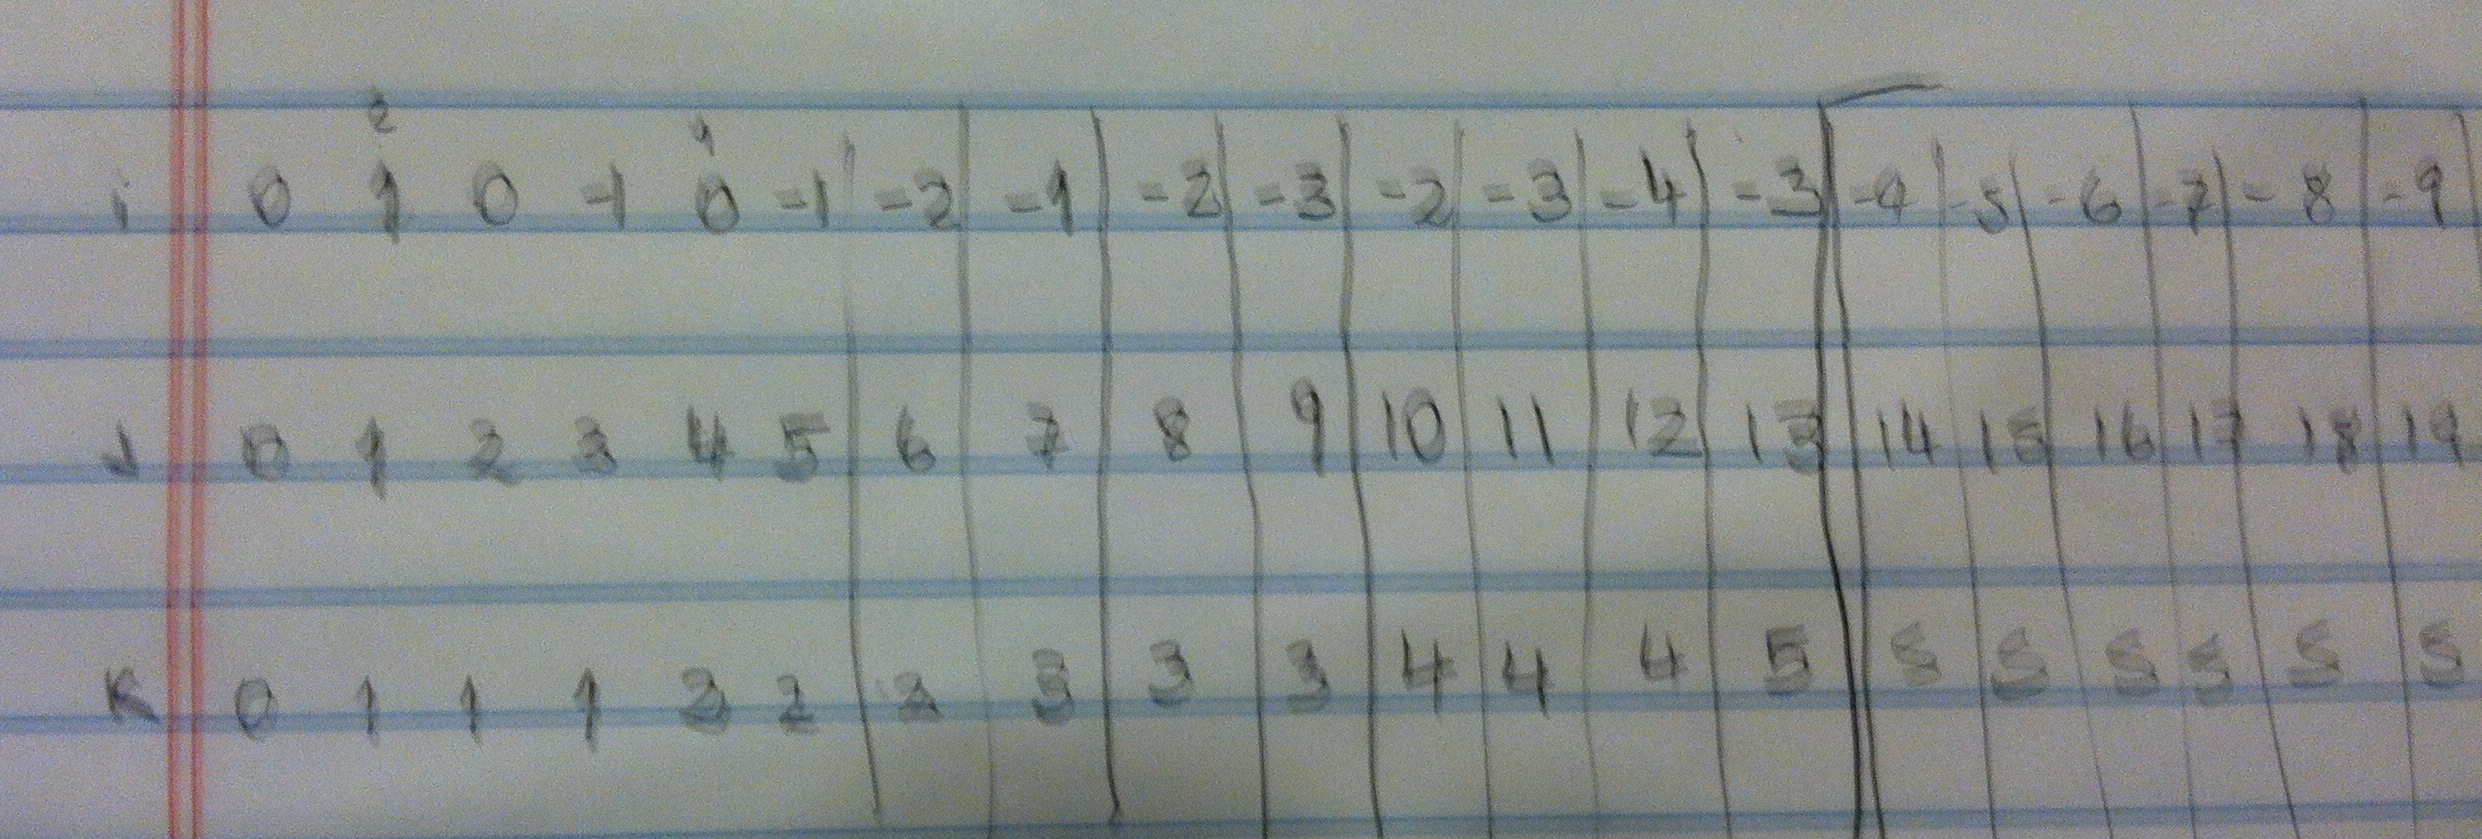 2 1
i 0 1 0 -1 0 -1 -2 -1 -2 -3 -2 -3 -4 -3 -4 -5 -6 -7 -8 -9
J 0 1 2 3 4 5 6 7 8 9 10 11 12 13 14 15 16 17 18 19
K 0 1 1 1 2 2 2 3 3 3 4 4 4 5 5 5 5 5 5 5